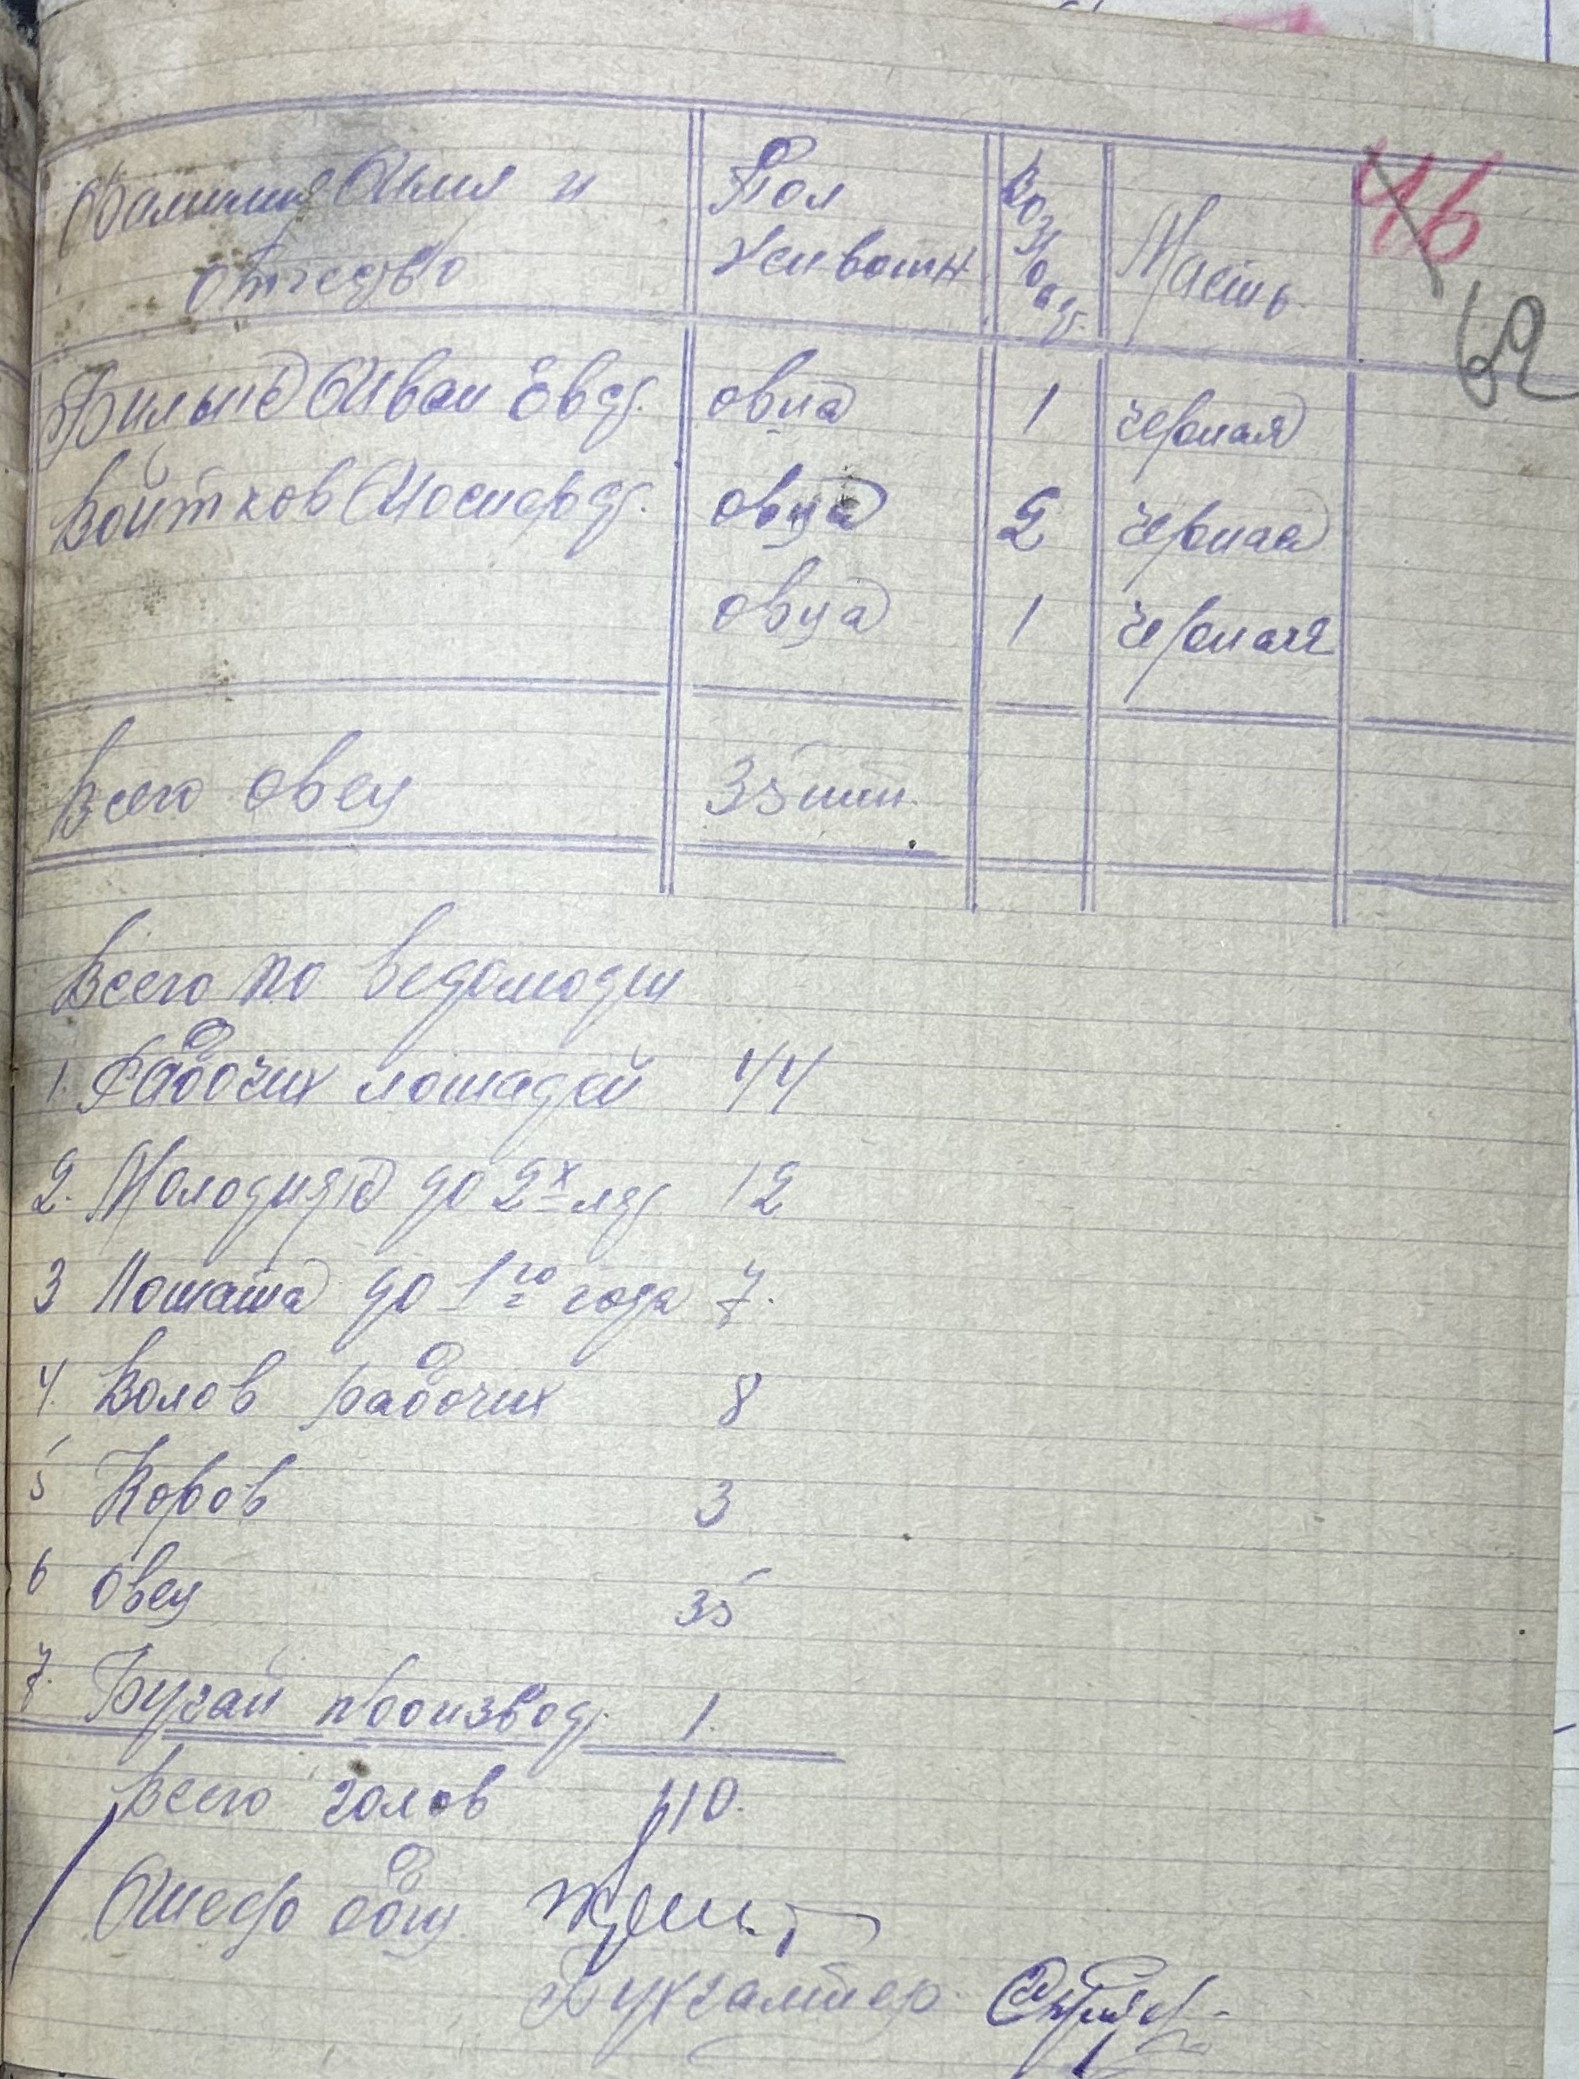 Фамилия Имя и отчество Пол животн. Возраст Масть
46
62
Билый Иван Евд. овца 1 черная
Войтков Иосиф овца 2 черная
овца 1 черная
Всего овец 35 шт.
Всего по ведомости
1. Рабочих лошадей 44
2. Молодняд до 2х лет 12
3 Лошата до 1го года 7.
4. Волов рабочих 8
5 Коров 3
6 овец 35
7. Бугай производ. 1.
Всего голов 110.
Бухгалтер